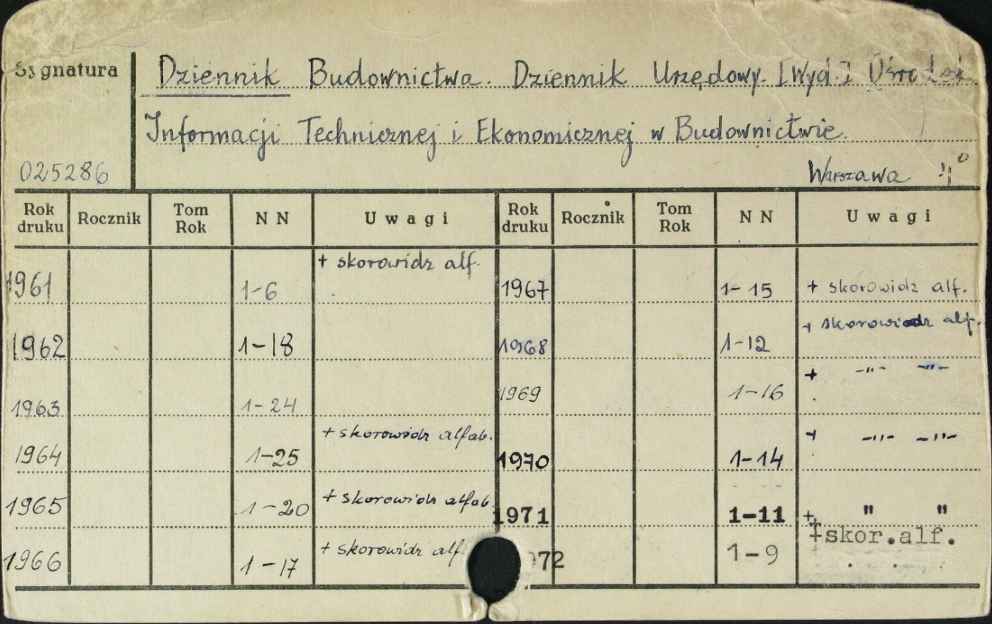 Sygnatura Dziennik Budownictwa. Dziennik Urzędowy. [Wyd.]
Informacji Technicznej i Ekonomicznej w Budownictwie.
025286 Warszawa 4°
Rok druku Rocznik Tom Rok NN Uwagi Rok druku Rocznik Tom Rok NN Uwagi
1961 1-6 + skorowidz alf. 1967 1-15 + skorowidz alf.
1962 1-18 1968 1-12 + skorowidz alf.
1963 1-24 1969 1-16 + -"- -"-
1964 1-25 + skorowidz alfab. 1970 1-14 + -"- -"-
1965 1-20 + skorowidz alfab. 1971 1-11 + " "
1966 1-17 + skorowidz alf 72 1-9 +skor.alf.